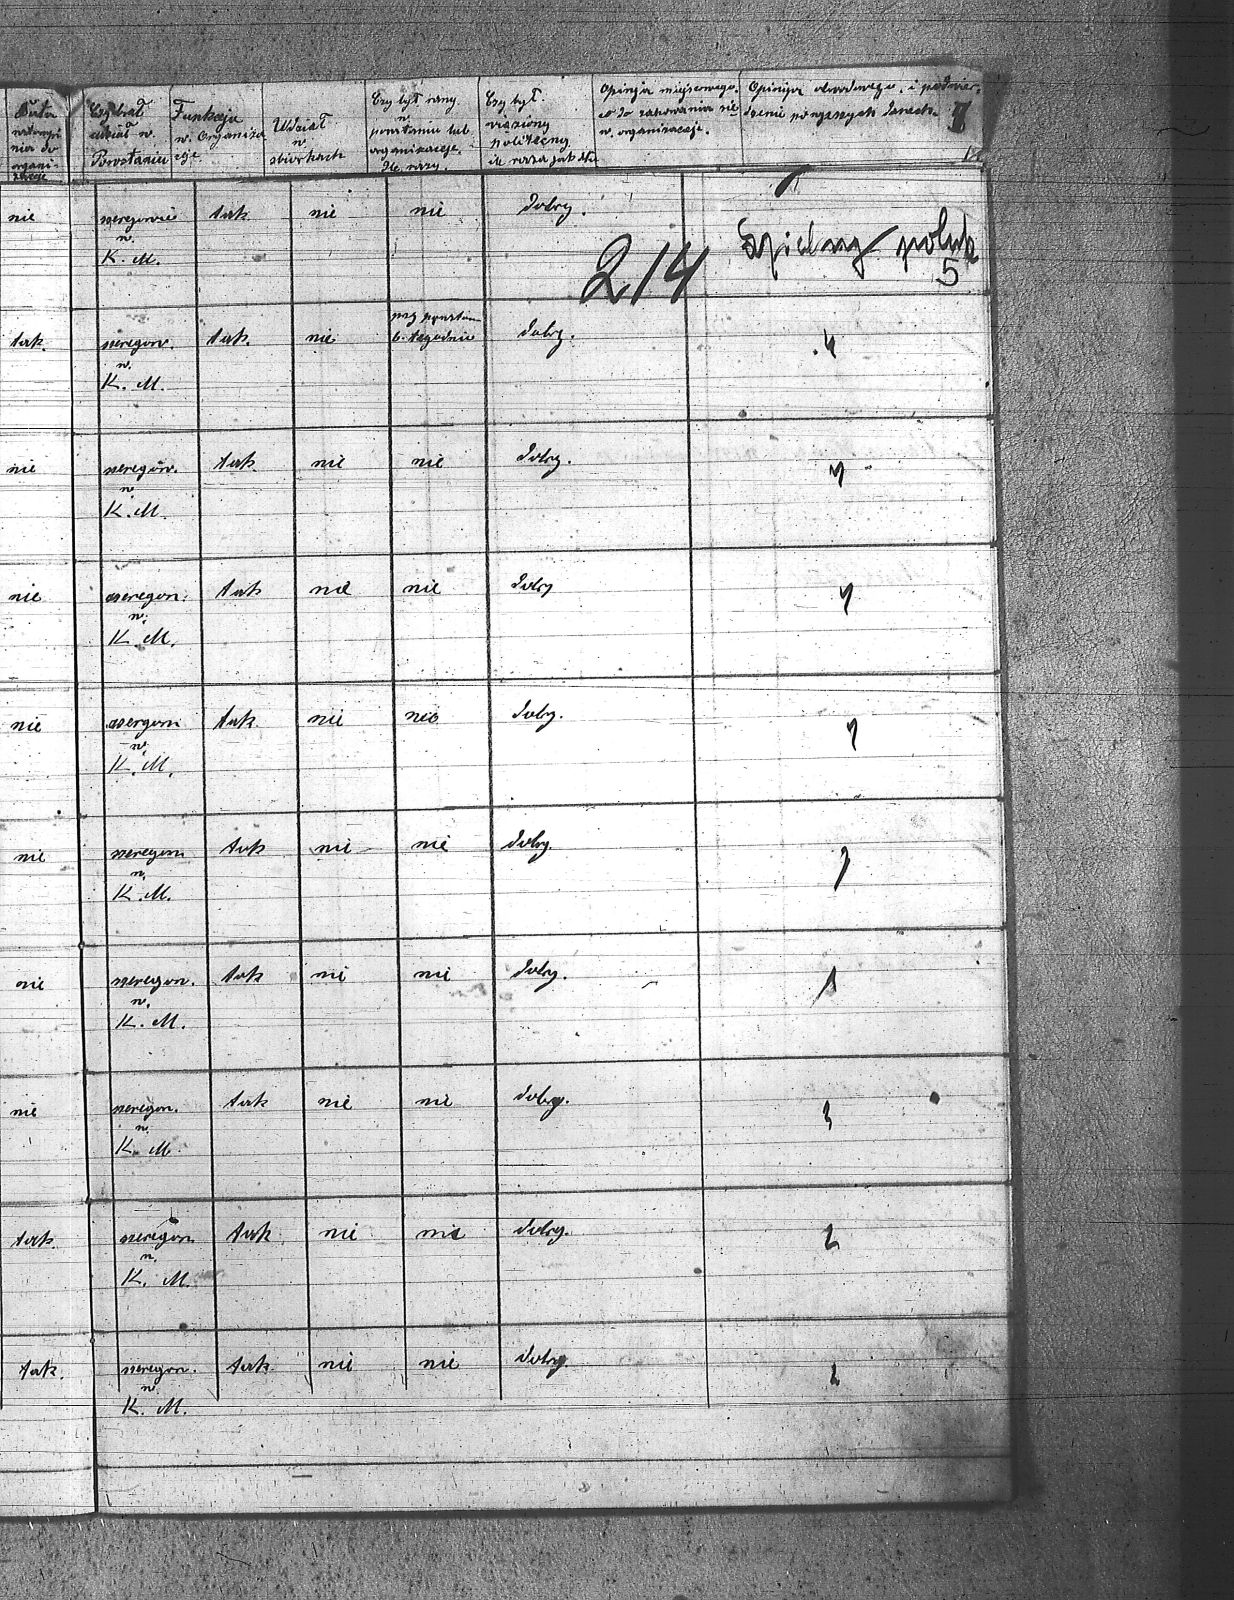 Data
nia do
organi-
zacji
Czy brał
udział w.
Powstaniu
Funkcja
w. Organiza
cje
Udział
w
zbiorkach
Czy był rany
w
powstaniu lub
organizacje.
Ile razy.
Czy był.
więziony
polityczny
ile razy jak dłu
Opinja miejscowego.
co do zachowania się
w. organizacji.
Opinja obwodowego. i potwier.
dzenie powyższych danych.
nie
szeregowie
w.
K. M.
tak
nie
nie
dobry.
214
Dzielny polak
5
tak.
szeregow.
w.
K. M.
tak.
nie
przy powstan
6. tygodnie
dobry.
4
nie
szeregów.
w.
K. M.
tak
nie
nie
dobry.
nie
szeregow.
w.
K. M.
tak
nie
nie
dobry
nie
szergow
w.
K. M.
tak
nie
nie
dobry.
nie
szeregow
w.
K. M.
tak
nie
nie
dobry.
nie
szeregow.
w.
K. M.
tak
ni
ni
dobry.
nie
szeregow.
w.
K. M.
tak
nie
nie
dobry.
3
tak.
szeregow
w.
K. M.
tak
nie
nie
dobry.
2
tak.
szeregow.
w.
K. M.
tak
nie
nie
dobry
2